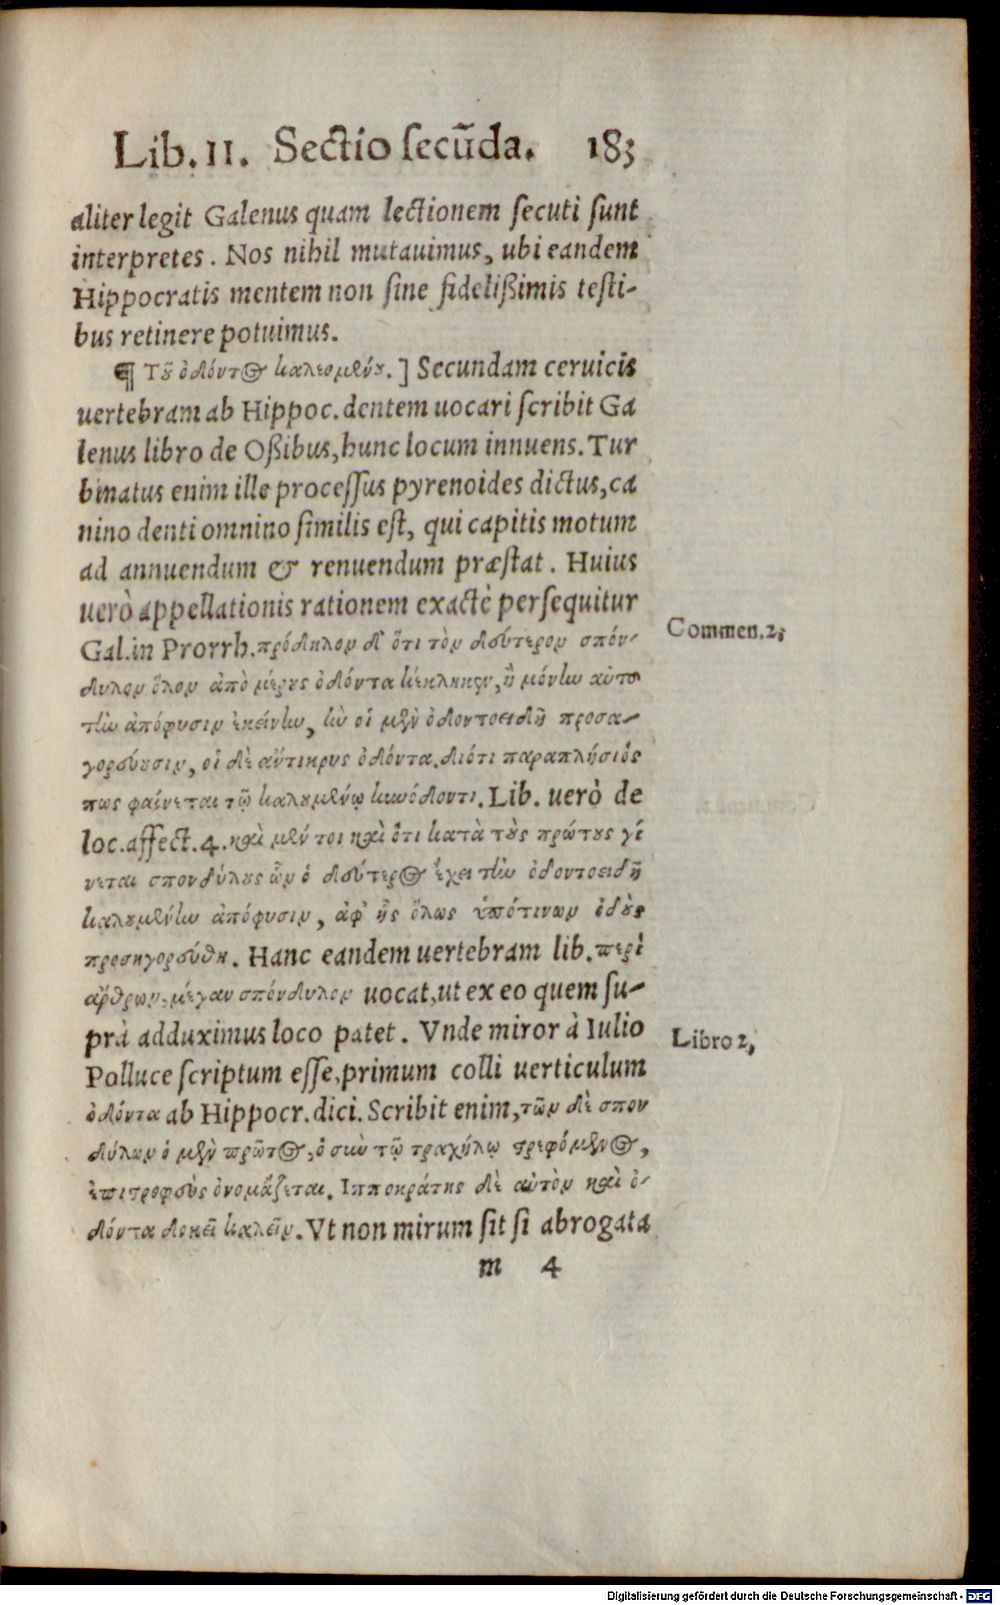 Lib. II. Sectio secũda. 183
aliter legit Galenus quam lectionem secuti sunt
interpretes. Nos nihil mutauimus, ubi eandem
Hippocratis mentem non sine fidelißimis testi-
bus retinere potuimus.
¶ Τοῦ ὀδόντος καλεομένου.] Secundam ceruicis
uertebram ab Hippoc. dentem uocari scribit Ga
lenus libro de Oßibus, hunc locum innuens. Tur
binatus enim ille processus pyrenoides dictus, ca
nino denti omnino similis est, qui capitis motum
ad annuendum & renuendum præstat. Huius
uerò appellationis rationem exactè persequitur
Gal. in Prorrh. πρόδηλον δ' ὅτι τὸν δεύτερον σπόν-
Commen. 2;
δυλον ὅλον ἀπὸ μέρους ὀδόντα κέκληκεν, ἢ μόνην αὐτο
τὴν ἀπόφυσιν ἐκείνην, ἣν οἱ μὲν ὀδοντοειδῆ προσα-
γορεύουσιν, οἱ δὲ ἄντικρυς ὀδόντα. διότι παραπλήσιός
πως φαίνεται τῷ καλουμένῳ κυνόδοντι. Lib. uerò de
loc. affect. 4. καὶ μέν τοι καὶ ὅτι κατὰ τοὺς πρώτους γί
νεται σπονδύλους ὧν ὁ δεύτερος ἔχει τὴν ὀδοντοειδῆ
καλουμένην ἀπόφυσιν, ἀφ' ἧς ὅλως ὑπότινων ὀδοὺς
προσηγορεύθη. Hanc eandem uertebram lib. περὶ
ἄρθρων, μέγαν σπόνδυλον uocat, ut ex eo quem su-
prà adduximus loco patet. Vnde miror à Iulio
Libro 2,
Polluce scriptum esse, primum colli uerticulum
ὀδόντα ab Hippocr. dici. Scribit enim, τῶν δὲ σπον
δύλων ὁ μὲν πρῶτος, ὁ σὺν τῷ τραχήλῳ τρεφόμενος,
ἐπιτροφεὺς ὀνομάζεται. Ιπποκράτης δὲ αὐτὸν καὶ ὀ-
δόντα δοκεῖ καλεῖν. Vt non mirum sit si abrogata
m 4
Digitalisierung gefördert durch die Deutsche Forschungsgemeinschaft - DFG